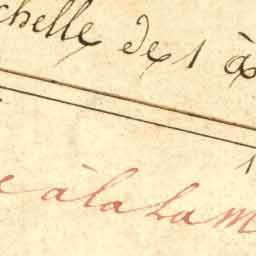 chelle de 1 à
1
e à la Lam